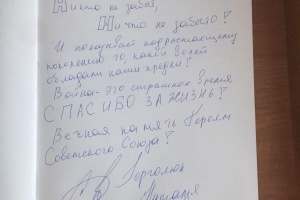 Никто не забыт,
Ничто не забыто!
И показывает подрастающему
поколению то, какой волей
обладали наши предки!
Война - это страшное время
СПАСИБО ЗА ЖИЗНЬ!
Вечная память Героям
Советского Союза!
Наталья